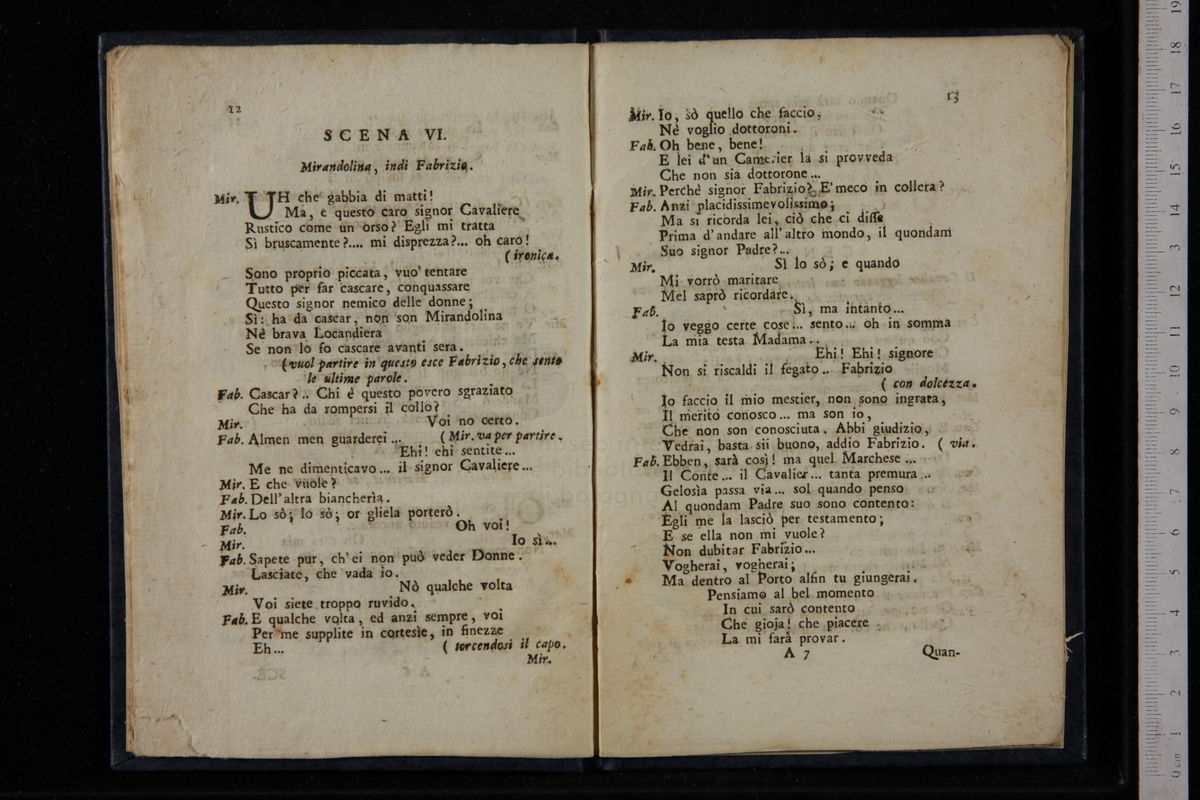 12
SCENA VI.
Mirandolina, indi Fabrizio.
Mir. UH che gabbia di matti!
Ma, e questo caro signor Cavaliere
Rustico come un orso? Egli mi tratta
Sì bruscamente?.... mi disprezza?... oh caro!
(ironica.
Sono proprio piccata, vuo' tentare
Tutto per far cascare, conquassare
Questo signor nemico delle donne;
Sì: ha da cascar, non son Mirandolina
Nè brava Locandiera
Se non lo fo cascare avanti sera.
(vuol partire in questo esce Fabrizio, che sente
le ultime parole.
Fab. Cascar?.. Chi è questo povero sgraziato
Che ha da rompersi il collo?
Mir. Voi no certo.
Fab. Almen men guarderei... (Mir. va per partire.
Ehi! ehi sentite...
Me ne dimenticavo... il signor Cavaliere...
Mir. E che vuole?
Fab. Dell'altra biancherìa.
Mir. Lo sò; lo sò; or gliela porterò.
Fab. Oh voi!
Mir. Io sì...
Fab. Sapete pur, ch'ei non può veder Donne.
Lasciate, che vada io.
Mir. Nò qualche volta
Voi siete troppo ruvido.
Fab. E qualche volta, ed anzi sempre, voi
Per me supplite in cortesìe, in finezze
Eh... (torcendosi il capo.
Mir.
13
Mir. Io, sò quello che faccio,
Nè voglio dottoroni.
Fab. Oh bene, bene!
E lei d'un Camerier la si provveda
Che non sia dottorone...
Mir. Perchè signor Fabrizio? E' meco in collera?
Fab. Anzi placidissimevolissimo;
Ma si ricorda lei, ciò che ci disse
Prima d'andare all'altro mondo, il quondam
Suo signor Padre?...
Mir. Sì lo sò; e quando
Mi vorrò maritare
Mel saprò ricordare.
Fab. Sì, ma intanto...
Io veggo certe cose... sento... oh in somma
La mia testa Madama..
Mir. Ehi! Ehi! signore
Non si riscaldi il fegato.. Fabrizio
(con dolcezza.
Io faccio il mio mestier, non sono ingrata,
Il merito conosco... ma son io,
Che non son conosciuta. Abbi giudizio,
Vedrai, basta sii buono, addio Fabrizio. (via.
Fab. Ebben, sarà così! ma quel Marchese...
Il Conte... il Cavalier... tanta premura...
Gelosìa passa via... sol quando penso
Al quondam Padre suo sono contento:
Egli me la lasciò per testamento;
E se ella non mi vuole?
Non dubitar Fabrizio...
Vogherai, vogherai;
Ma dentro al Porto alfin tu giungerai.
Pensiamo al bel momento
In cui sarò contento
Che gioja! che piacere
La mi farà provar.
A 7 Quan-